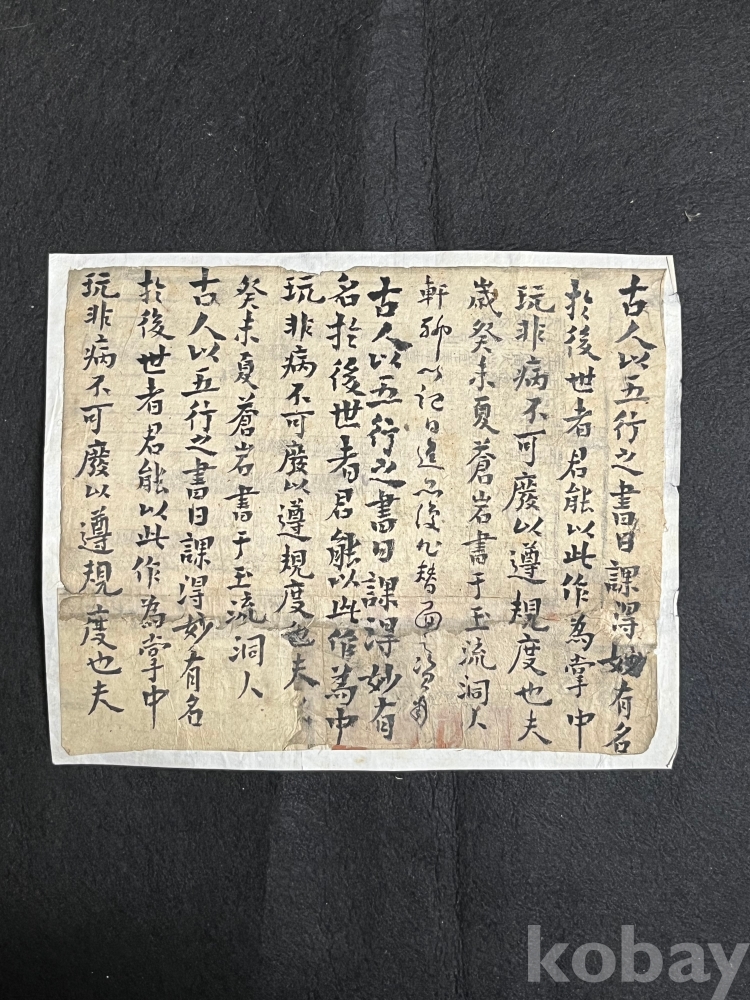 古人以五行之書日課得妙有名
於後世者君能以此作為掌中
玩非病不可廢以遵規度也夫
歲癸未夏蒼岩書于玉流洞人
軒聊以記日進而後
古人以五行之書日課得妙有
名於後世者君能以此作為中
玩非病不可廢以遵規度也夫
癸未夏蒼岩書于玉流洞人
古人以五行之書日課得妙有名
於後世者君能以此作為掌中
玩非病不可廢以遵規度也夫
kobay